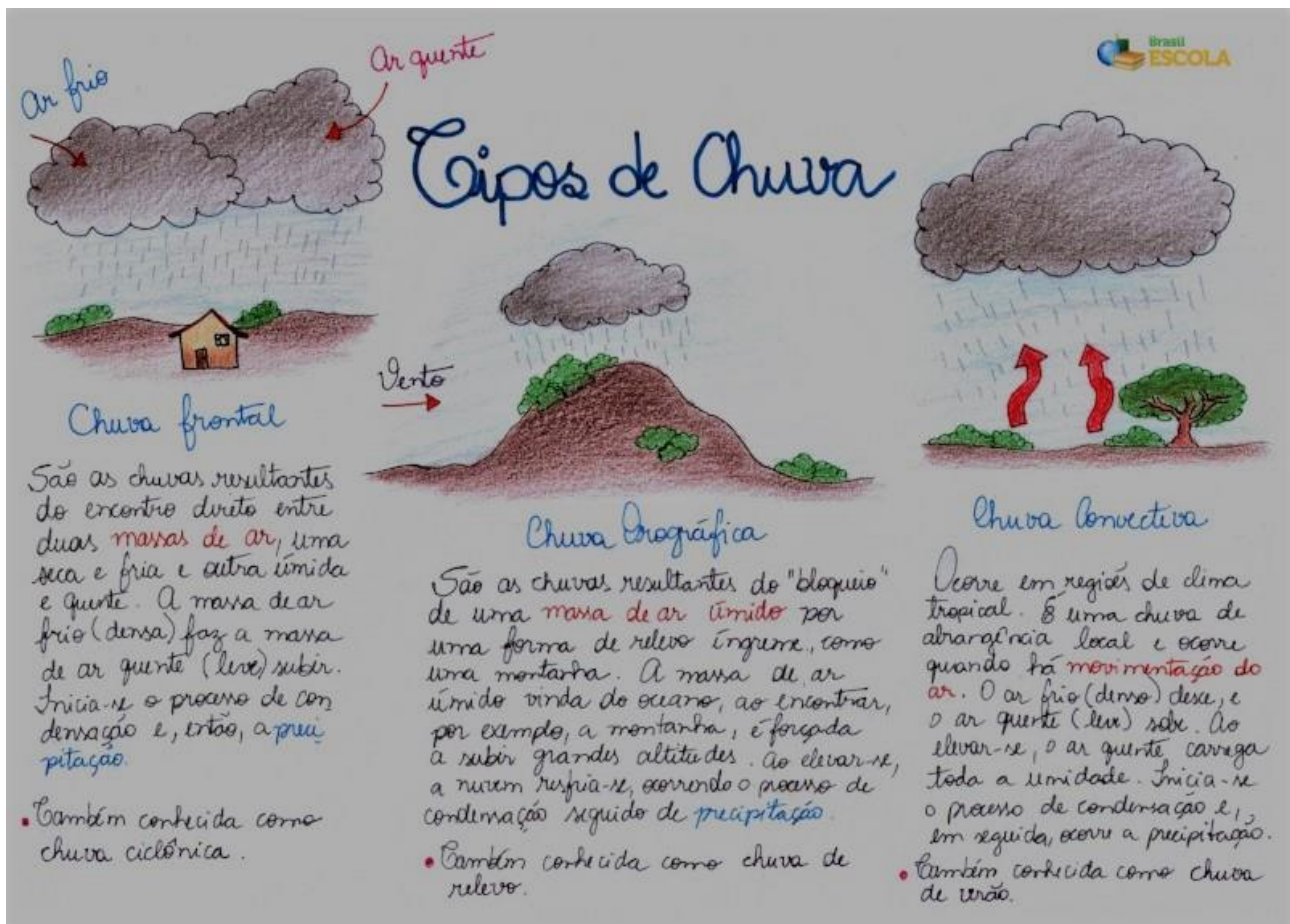 Ar frio
Ar quente
Brasil
ESCOLA
Tipos de Chuva
Chuva frontal
São as chuvas resultantes
do encontro direto entre
duas massas de ar, uma
seca e fria e outra úmida
e quente. A massa de ar
frio (densa) faz a massa
de ar quente (leve) subir.
Inicia-se o processo de con
densação e, então, a preci
pitação.
• Também conhecida como
chuva ciclônica.
Vento
Chuva Orográfica
São as chuvas resultantes do "bloqueio"
de uma massa de ar úmido por
uma forma de relevo íngreme, como
uma montanha. A massa de ar
úmido vinda do oceano, ao encontrar,
por exemplo, a montanha, é forçada
a subir grandes altitudes. Ao elevar-se,
a nuvem resfria-se, ocorrendo o processo de
condensação seguido de precipitação.
• Também conhecida como chuva de
relevo.
Chuva Convectiva
Ocorre em regiões de clima
tropical. É uma chuva de
abrangência local e ocorre
quando há movimentação do
ar. O ar frio (denso) desce, e
o ar quente (leve) sobe. Ao
elevar-se, o ar quente carrega
toda a umidade. Inicia-se
o processo de condensação e,
em seguida, ocorre a precipitação.
• Também conhecida como chuva
de verão.